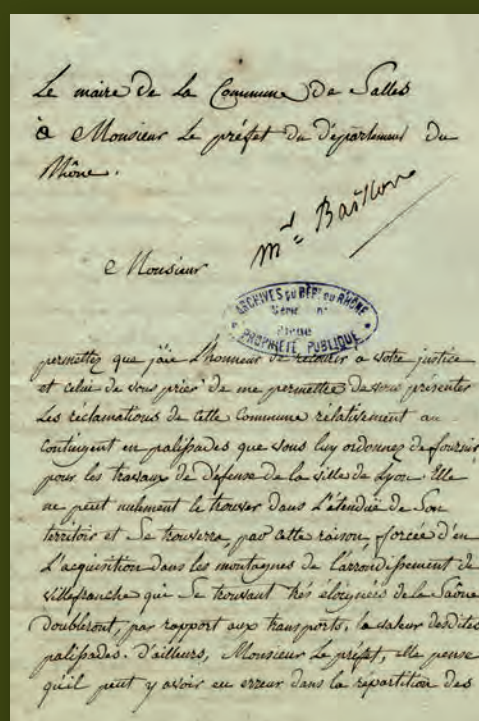 Le maire de la Commune de Salles
à Monsieur Le préfet du département du
Rhône.
Mr Baillon
Monsieur
ARCHIVES DU DÉPT DU RHÔNE
Série n°
PROPRIÉTÉ PUBLIQUE
permettez que j'aie L'honneur de recourir a votre justice
et celui de vous prier de me permettre de vous présenter
Les reclamations de cette Commune relativement au
Contingent en palissades que vous luy ordonnez de fournir
pour les travaux de défense de la ville de Lyon. Elle
ne peut nulement le trouver dans L'étenduë de Son
territoir et Se trouverra, par cette raison, forcée d'en
L'acquisition dans les montagnes de L'arrondissement de
villefranche qui Se trouvant trés éloignées de la Saône
Doubleront, par rapport aux transports, la valeur desdites
palissades. D'ailleurs, Monsieur Le préfet, elle pense
qu'il peut y avoir eu erreur dans la repartition des